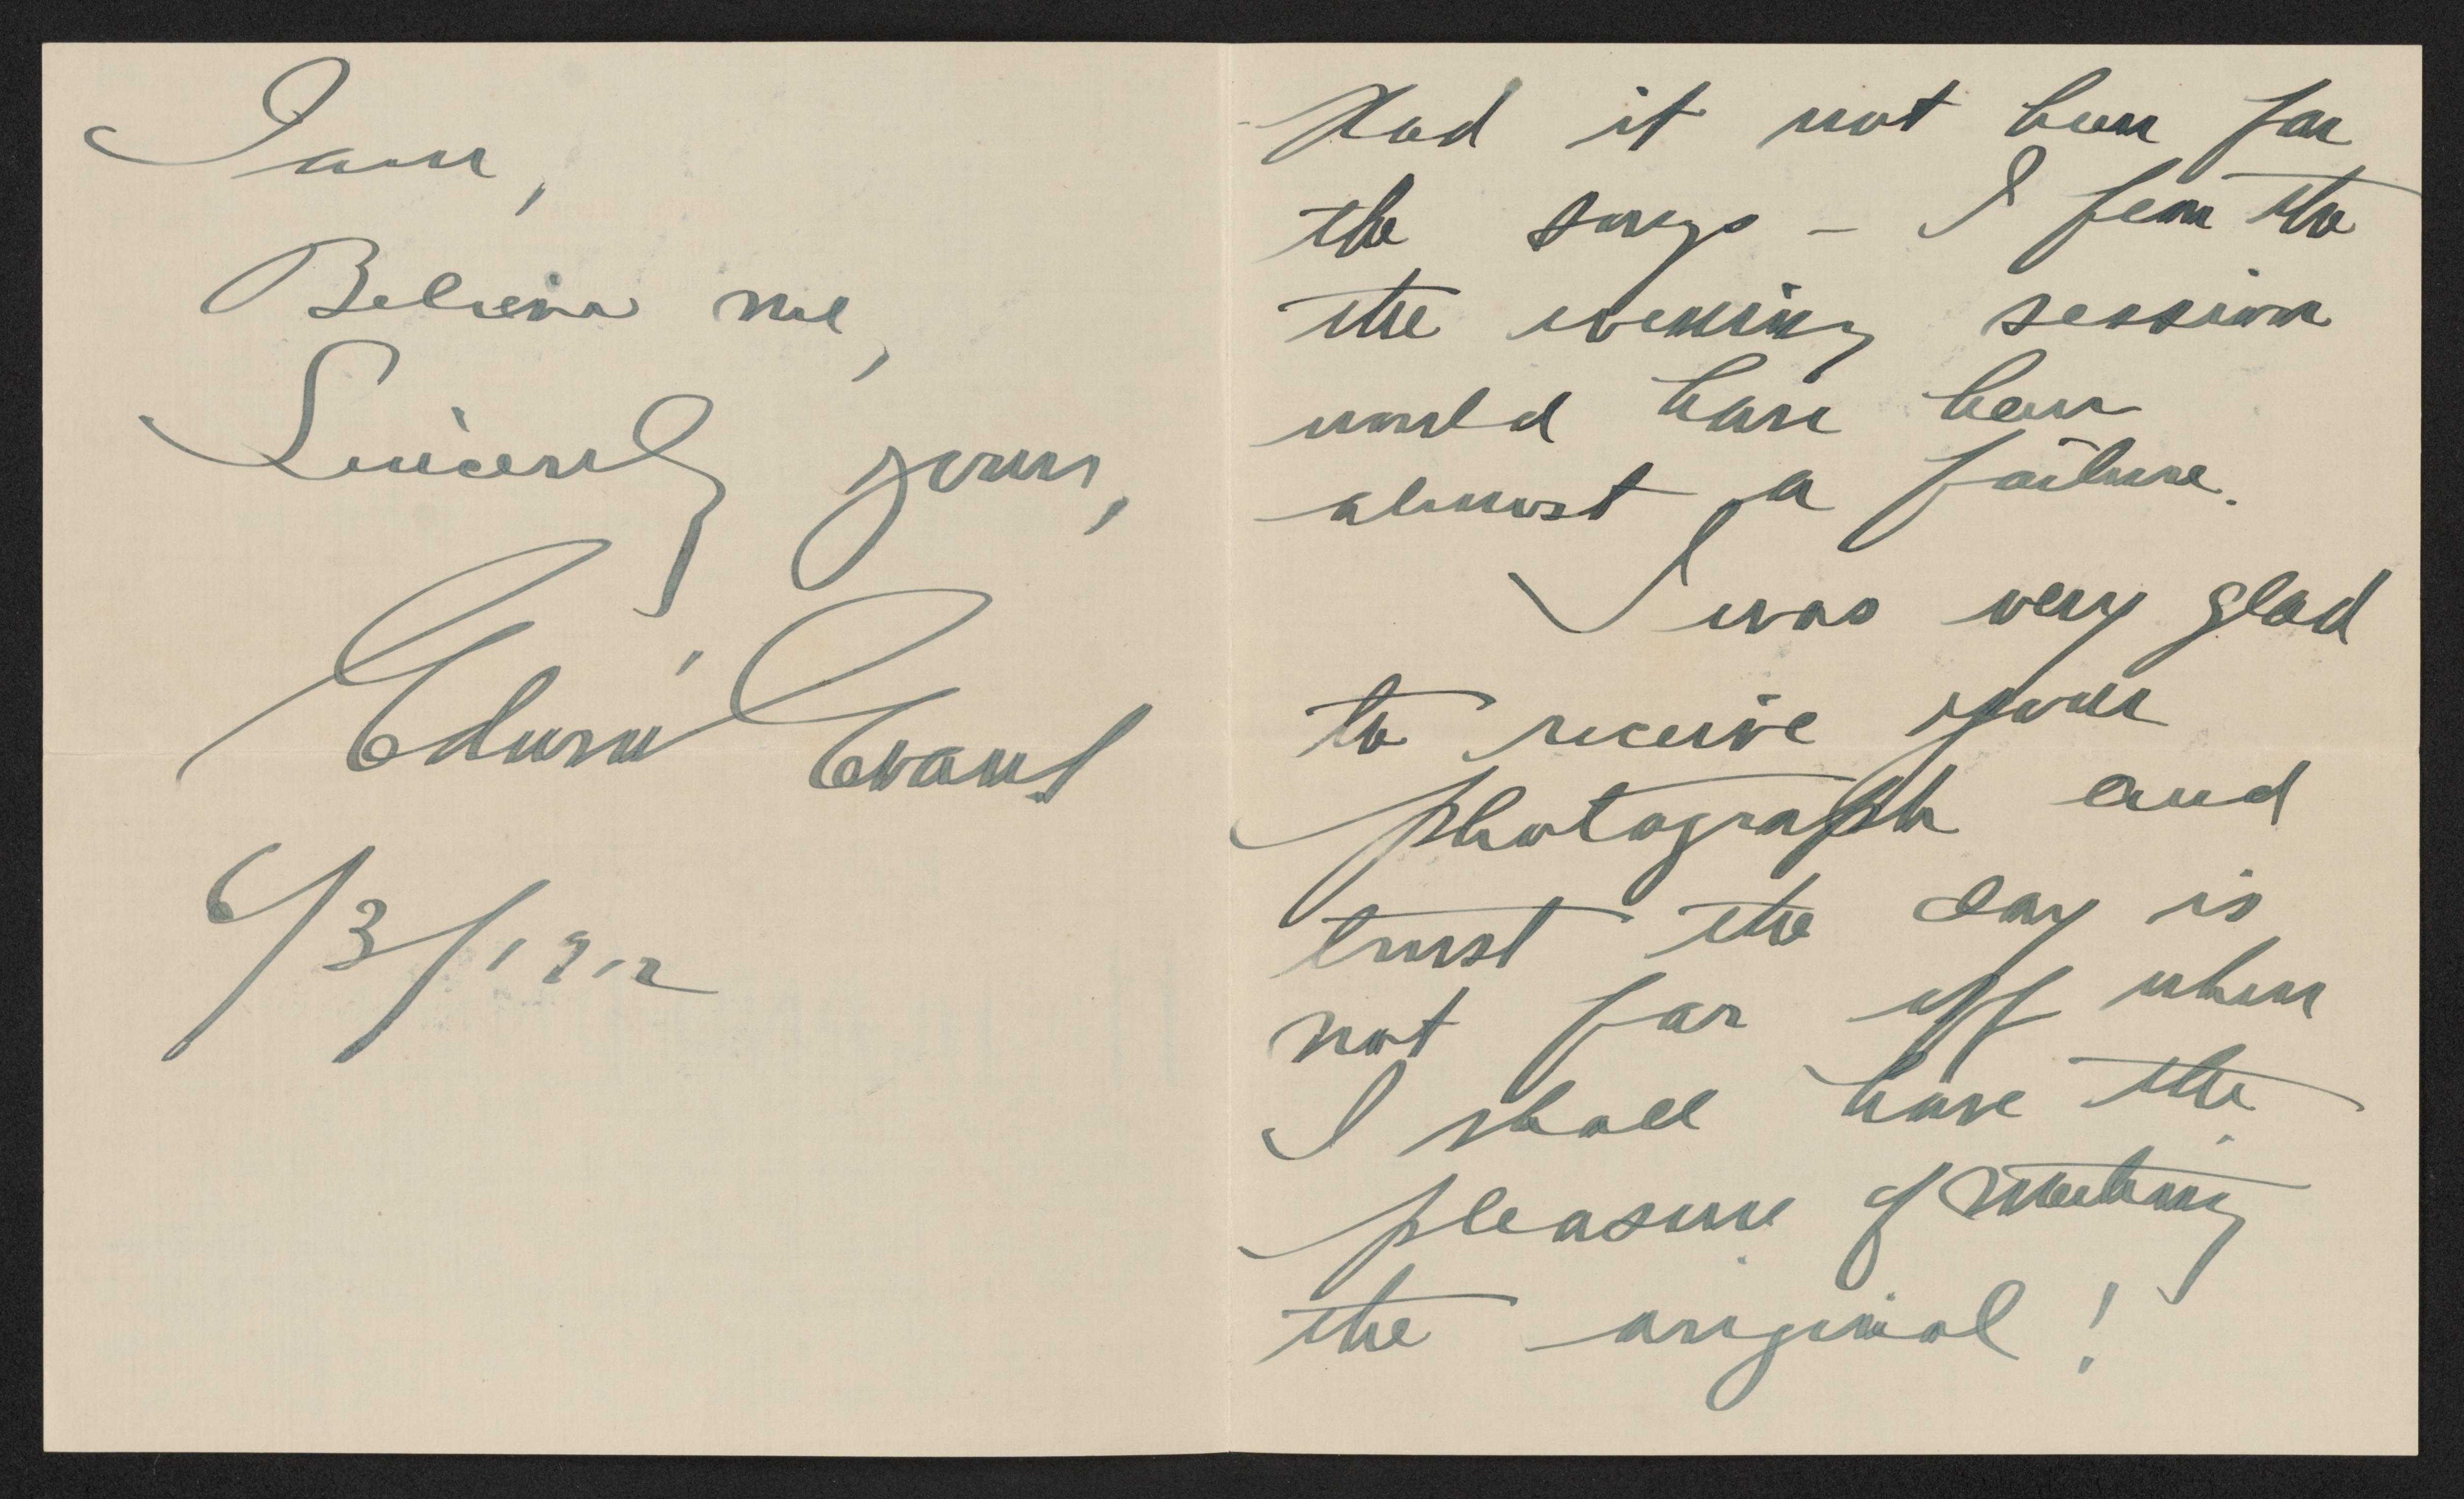 Had it not been for
the songs – I fear the
the evening session
would have been
almost a failure.
I was very glad
to receive your
photograph and
trust the day is
not far off when
I shall have the
pleasure of meeting
the original!
I am,
Believe me,
Sincerely yours,
Edwin Evans
6/3/1912